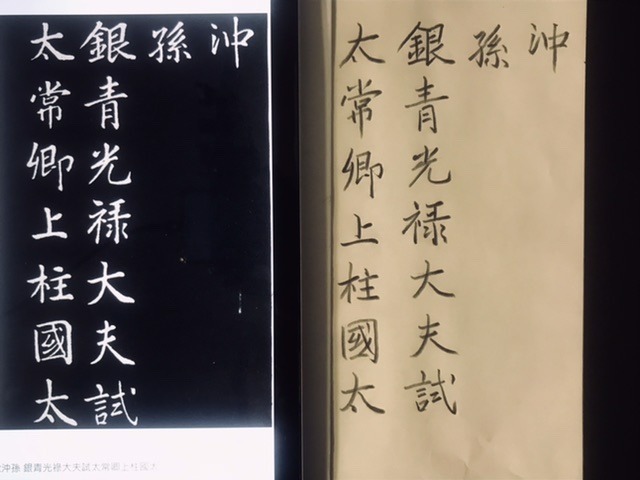 沖
孫
銀青光祿大夫試
太常卿上柱國太
沖
孫
銀青光祿大夫試
太常卿上柱國太
沖孫 銀青光祿大夫試太常卿上柱國太